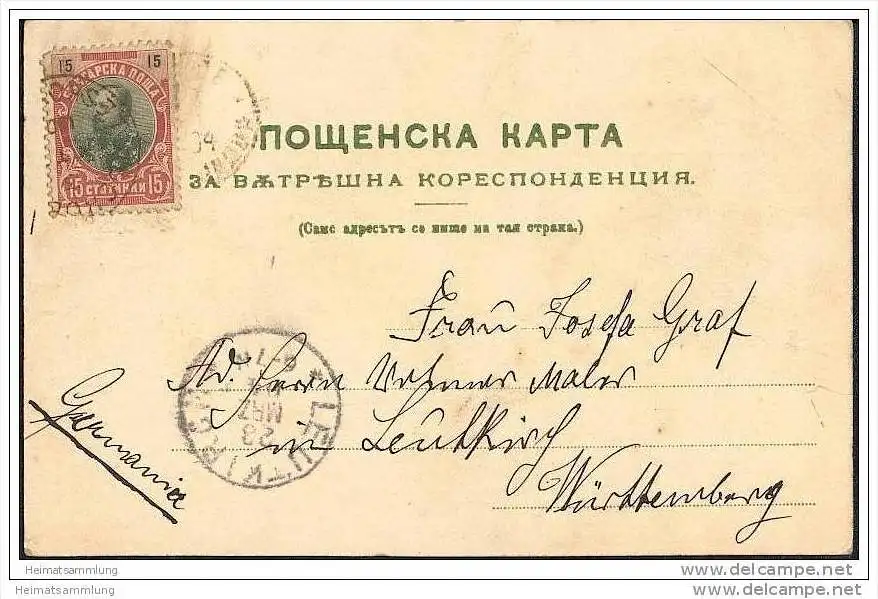 15 15
БЪЛГАРСКА ПОЩА
15 СТОТИНКИ 15
ПОЩЕНСКА КАРТА
ЗА ВѪТРѢШНА КОРЕСПОНДЕНЦИЯ.
(Само адресътъ се пише на тая страна.)
Frau Josefa Graf
Ad. Herrn Maler
in Leutkirch
Württemberg
Germania
LEUTKIRCH
28
MRZ
6-7
Heimatsammlung
www.delcampe.net
Heimatsammlung
www.delcampe.net